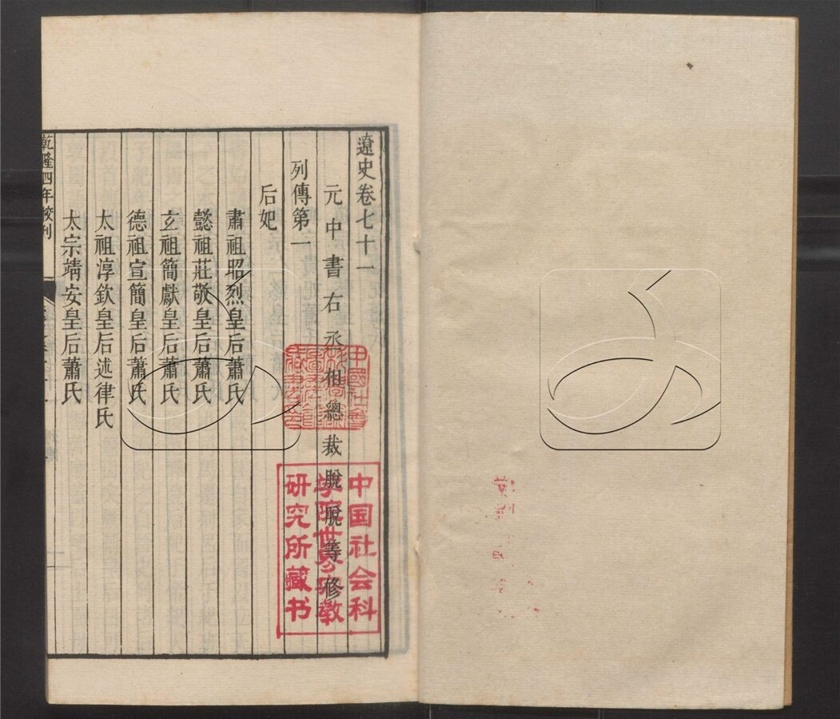 遼史卷七十一
元中書右丞相總裁脫脫等修
列傳第一
后妃
肅祖昭烈皇后蕭氏
懿祖莊敬皇后蕭氏
玄祖簡獻皇后蕭氏
德祖宣簡皇后蕭氏
太祖淳欽皇后述律氏
太宗靖安皇后蕭氏
乾隆四年校刊
中国社会科
学院世界宗教
研究所藏书